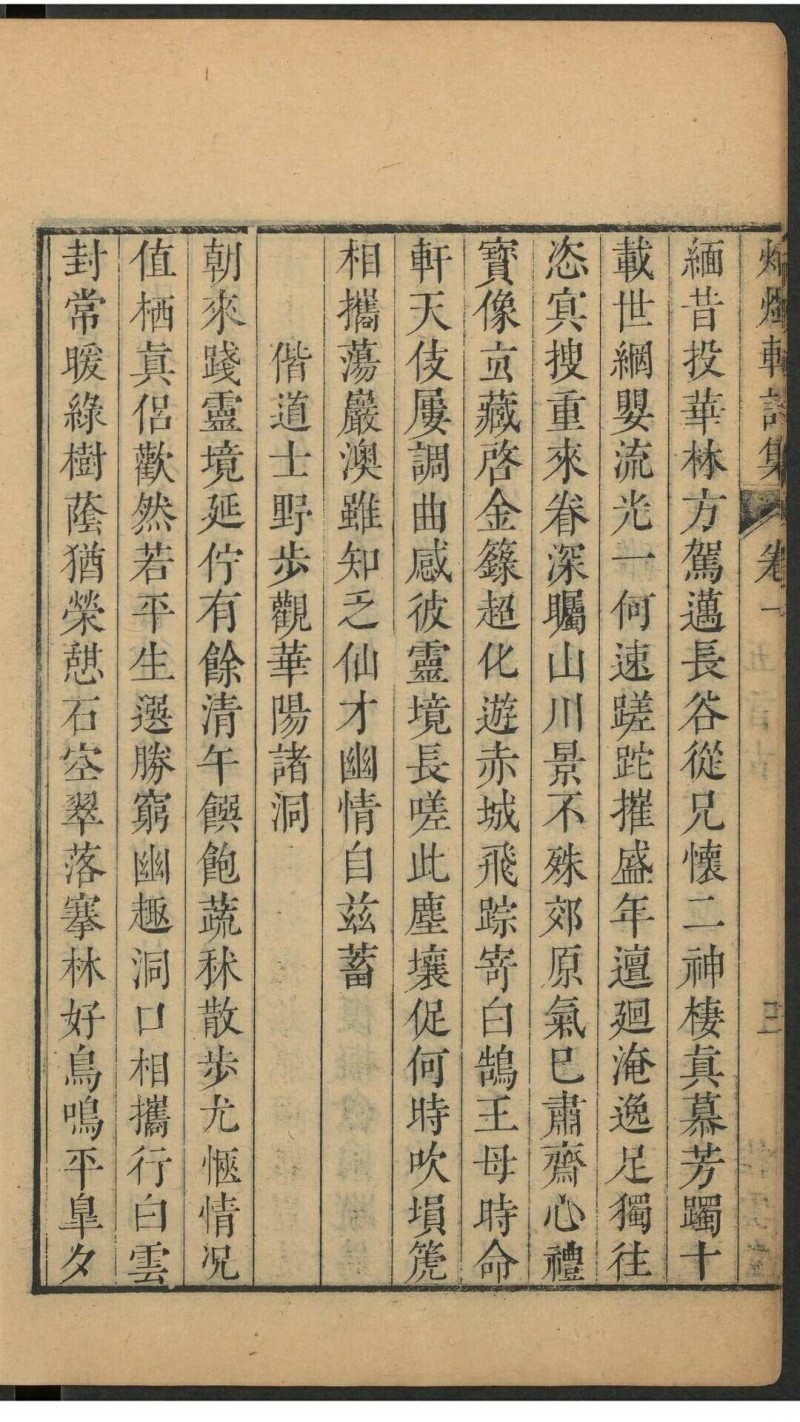 軒詩集 卷一 三
緬昔投華林方駕邁長谷從兄懷二神棲真慕芳躅十
載世網嬰流光一何速蹉跎摧盛年邅廻淹逸足獨往
恣冥搜重來眷深矚山川景不殊郊原氣已肅齋心禮
寶像玄藏啓金籙超化遊赤城飛踪寄白鵠王母時命
軒天伎屢調曲感彼靈境長嗟此塵壤促何時吹塤箎
相攜蕩巖澳雖知乏仙才幽情自兹蓄
偕道士野步觀華陽諸洞
朝來踐靈境延佇有餘清午饌飽蔬秫散步尤愜情况
值栖真侶歡然若平生選勝窮幽趣洞口相攜行白雲
封常暖綠樹蔭猶榮憇石空翠落搴林好鳥鳴平臯夕